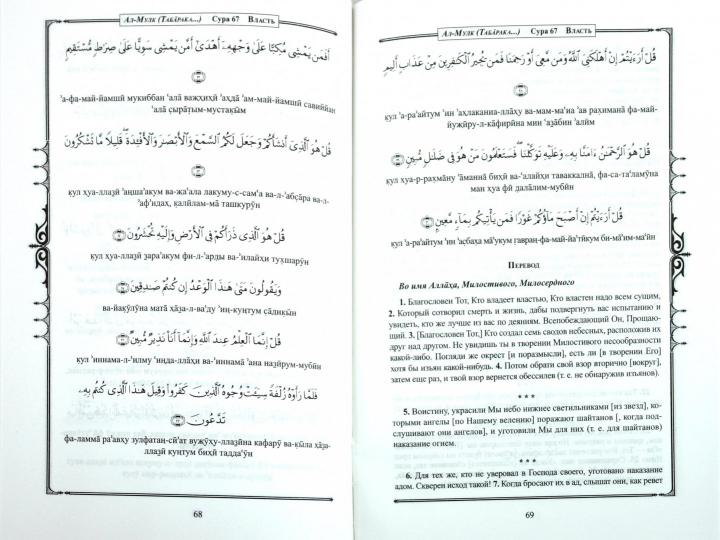 Ал-Мулк (Табāрака...) Сура 67 Власть
أَفَمَن يَمْشِى مُكِبًّا عَلَىٰ وَجْهِهِۦٓ أَهْدَىٰٓ أَمَّن يَمْشِى سَوِيًّا عَلَىٰ صِرَٰطٍ مُّسْتَقِيمٍ
'а-фа-май-йамшӣ мукиббан 'алā важҳихӣ 'аҳдā 'ам-май-йамшӣ савиййан
'алā ṣырāṭым-мустақӣм
قُلْ هُوَ ٱلَّذِىٓ أَنشَأَكُمْ وَجَعَلَ لَكُمُ ٱلسَّمْعَ وَٱلْأَبْصَٰرَ وَٱلْأَفْـِٔدَةَ ۖ قَلِيلًا مَّا تَشْكُرُونَ
қул ҳуа-ллаз̱ӣ 'аңша'акум ва-жа'ала лакуму-с-сам'а ва-л-'абṣāра ва-л-
'аф'идах, қалӣлам-мā ташкурӯн
قُلْ هُوَ ٱلَّذِى ذَرَأَكُمْ فِى ٱلْأَرْضِ وَإِلَيْهِ تُحْشَرُونَ
қул ҳуа-ллаз̱ӣ з̱ара'акум фи-л-'арды ва-'илайҳи туҳшарӯн
وَيَقُولُونَ مَتَىٰ هَٰذَا ٱلْوَعْدُ إِن كُنتُمْ صَٰدِقِينَ
ва-йақӯлӯна матā хāз̱а-л-ва'ду 'иң-кунтум ṣāдиқӣн
قُلْ إِنَّمَا ٱلْعِلْمُ عِندَ ٱللَّهِ وَإِنَّمَآ أَنَا۠ نَذِيرٌ مُّبِينٌ
қул 'иннама-л-'илму 'иңда-ллāҳи ва-'иннамā 'ана наз̱ӣрум-мубӣн
فَلَمَّا رَأَوْهُ زُلْفَةً سِيٓـَٔتْ وُجُوهُ ٱلَّذِينَ كَفَرُوا۟ وَقِيلَ هَٰذَا ٱلَّذِى كُنتُم بِهِۦ
تَدَّعُونَ
фа-ламмā ра'авҳу зулфатан-сӣ'ат вужӯҳу-ллаз̱ӣна кафарӯ ва-қӣла хāз̱а-
ллаз̱ӣ кунтум биҳӣ тадда'ӯн
68
Ал-Мулк (Табāрака...) Сура 67 Власть
قُلْ أَرَءَيْتُمْ إِنْ أَهْلَكَنِىَ ٱللَّهُ وَمَن مَّعِىَ أَوْ رَحِمَنَا فَمَن يُجِيرُ ٱلْكَٰفِرِينَ مِنْ عَذَابٍ أَلِيمٍ
қул 'а-ра'айтум 'ин 'аҳлаканийа-ллāҳу ва-мам-ма'ийа 'ав раҳиманā фа-май-
йужӣру-л-кāфирӣна мин 'аз̱āбин 'алӣм
قُلْ هُوَ ٱلرَّحْمَٰنُ ءَامَنَّا بِهِۦ وَعَلَيْهِ تَوَكَّلْنَا ۖ فَسَتَعْلَمُونَ مَنْ هُوَ فِى ضَلَٰلٍ مُّبِينٍ
қул ҳуа-р-раҳмāну 'āманнā биҳӣ ва-'алайҳи таваккалнā, фа-са-та'ламӯна
ман ҳуа фӣ далāлим-мубӣн
قُلْ أَرَءَيْتُمْ إِنْ أَصْبَحَ مَآؤُكُمْ غَوْرًا فَمَن يَأْتِيكُم بِمَآءٍ مَّعِينٍۭ
қул 'а-ра'айтум 'ин 'аṣбаҳа мā'укум гавран-фа-май-йа'тӣкум би-мā'им-ма'ӣн
Перевод
Во имя Аллāҳа, Милостивого, Милосердного
1. Благословен Тот, Кто владеет властью, Кто властен надо всем сущим,
2. Который сотворил смерть и жизнь, дабы подвергнуть вас испытанию и
увидеть, кто же лучше из вас по деяниям. Всепобеждающий Он, Прощаю-
щий. 3. [Благословен Тот,] Кто создал семь сводов небесных, расположив их
друг над другом. Не увидишь ты в творении Милостивого несообразности
какой-либо. Погляди же окрест [и поразмысли], есть ли [в творении Его]
хотя бы изъян какой-нибудь. 4. Потом обрати свой взор вторично [вокруг],
затем еще раз, и твой взор вернется обессилев (т. е. не обнаружив изъянов).
* * *
5. Воистину, украсили Мы небо нижнее светильниками [из звезд], ко-
торыми ангелы [по Нашему велению] поражают шайтанов [, когда под-
слушивают они ангелов], и уготовили Мы для них (т. е. для шайтанов)
наказание огнем.
* * *
6. Для тех же, кто не уверовал в Господа своего, уготовано наказание
адом. Скверен исход такой! 7. Когда бросают их в ад, слышат они, как ревет
69